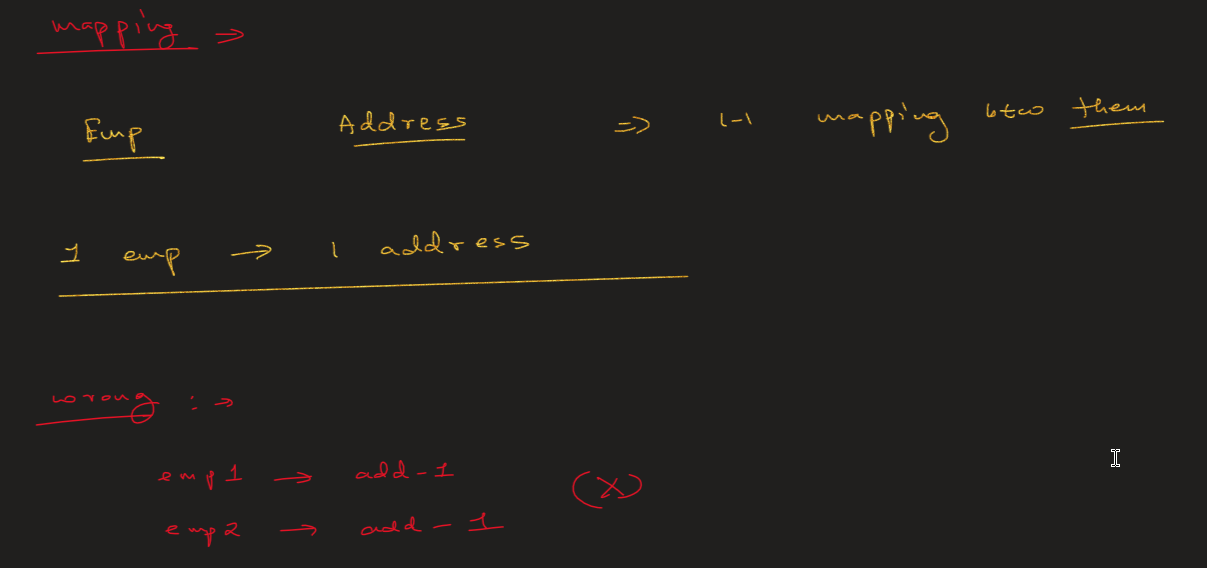 mapping ⇒
Emp Address ⇒ 1-1 mapping btw them
1 emp → 1 address
wrong : →
emp1 → add-1 (X)
emp2 → add-1